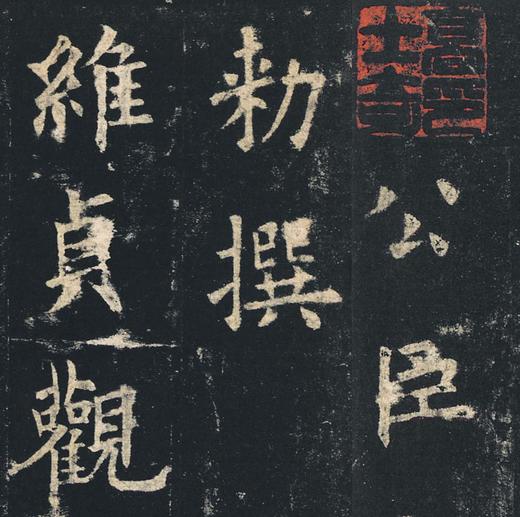 公臣
勑撰
維貞觀